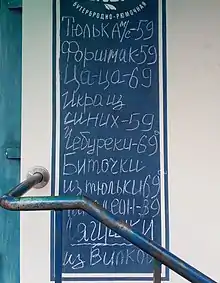 БУТЕРБРОДНО-РЮМОЧНАЯ
Тюлька м/с-59
Форшмак-59
Ца-ца-69
Икра из
синих-59
Чебуреки-69
Биточки
из тюльки 69
-39
Лягушки
из Вилково